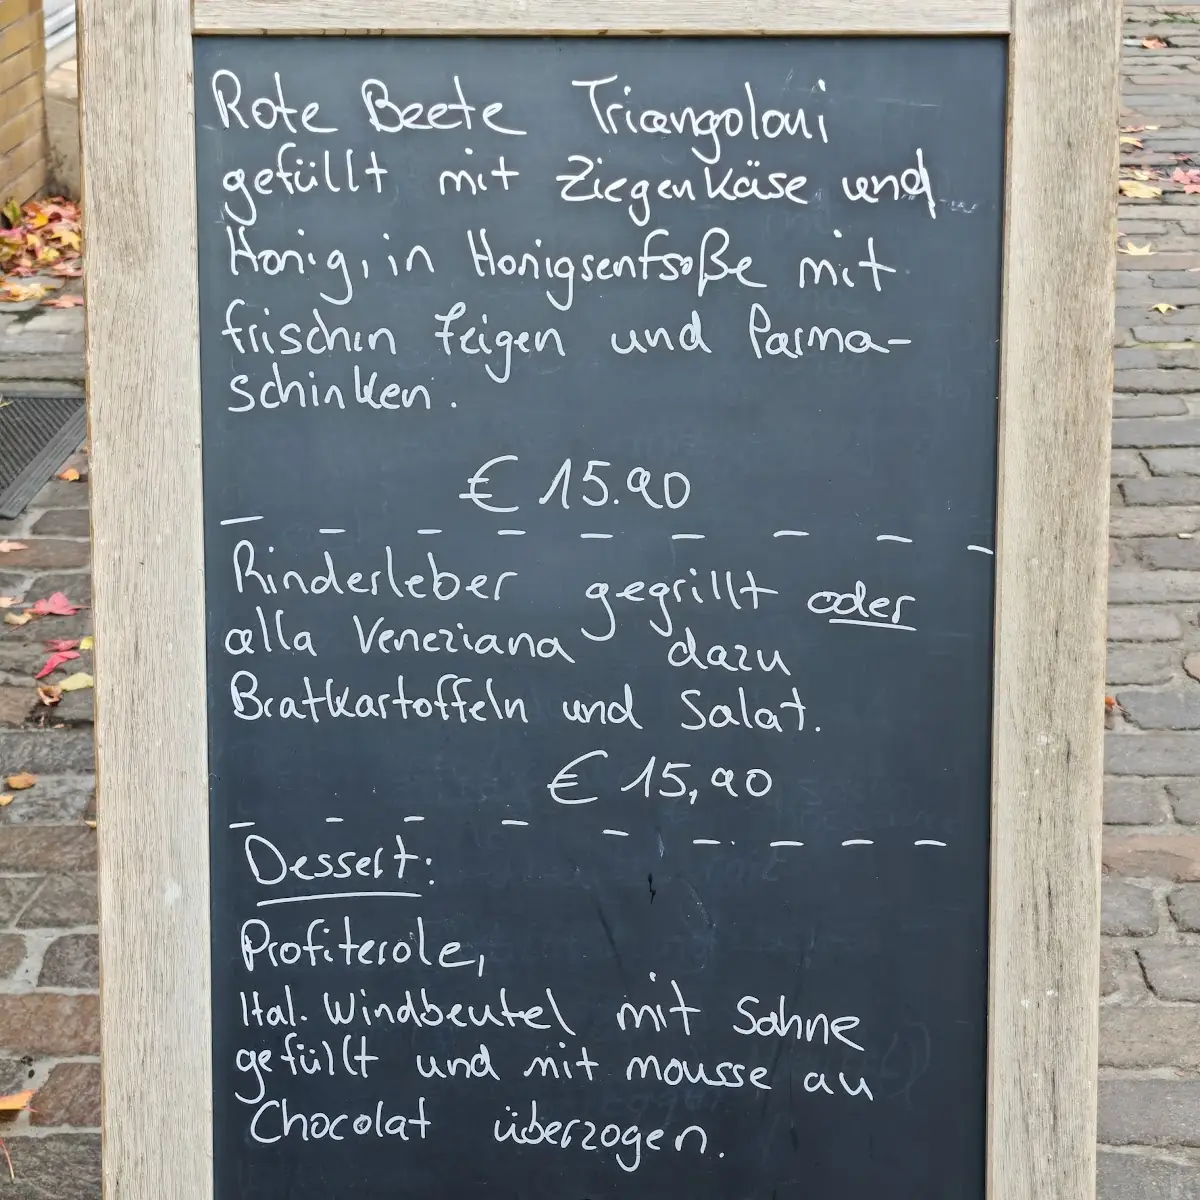 Rote Beete Triangoloni
gefüllt mit Ziegenkäse und
Honig, in Honigsenfsoße mit
frischen Feigen und Parma-
schinken.
€ 15.90
Rinderleber gegrillt oder
alla Veneziana dazu
Bratkartoffeln und Salat.
€ 15,90
Dessert:
Profiterole,
Ital. Windbeutel mit Sahne
gefüllt und mit mousse au
Chocolat überzogen.